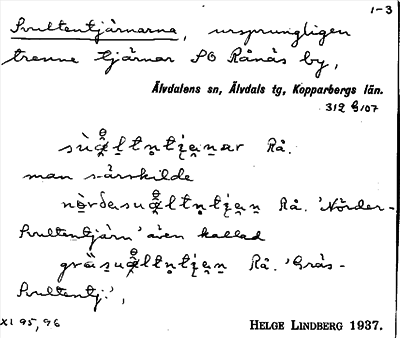 1-3
Svultentjärnarna, ursprungligen
trenne tjärnar SO Rånäs by,
Älvdalens sn, Älvdals tg, Kopparbergs län.
312 G 107
Rå.
man särskilde
Rå. 'Nörder-
Svultentjärn' även kallad
Rå. 'Gräs-
Svultentj.',
XI 95, 96
HELGE LINDBERG 1937.